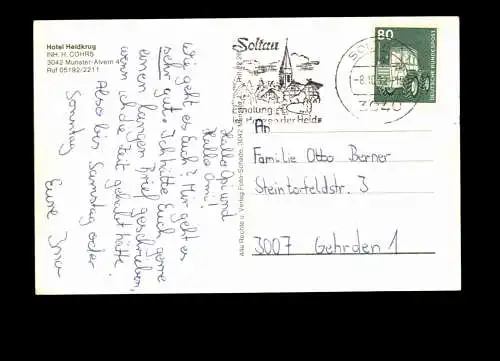 Hotel Heidkrug
INH. H. COHRS
3042 Munster-Alvern 4
Ruf 05192/2211
Hallo Opi und
Hallo Omi!
Wie geht es Euch? Mir geht es
sehr gut. Ich hätte Euch gerne
einen langen Brief geschrieben,
wenn ich die Zeit gehabt hätte.
Also bis Samstag oder
Sonntag
Eure
Alle Rechte u. Verlag Foto-Schade, 3042
Soltau
Erholung
Herzen der Heide
SOL
-8.10.
3040
80
DEUTSCHE BUNDESPOST
An
Familie Otto Berner
Steintorfeldstr. 3
3007 Gehrden 1